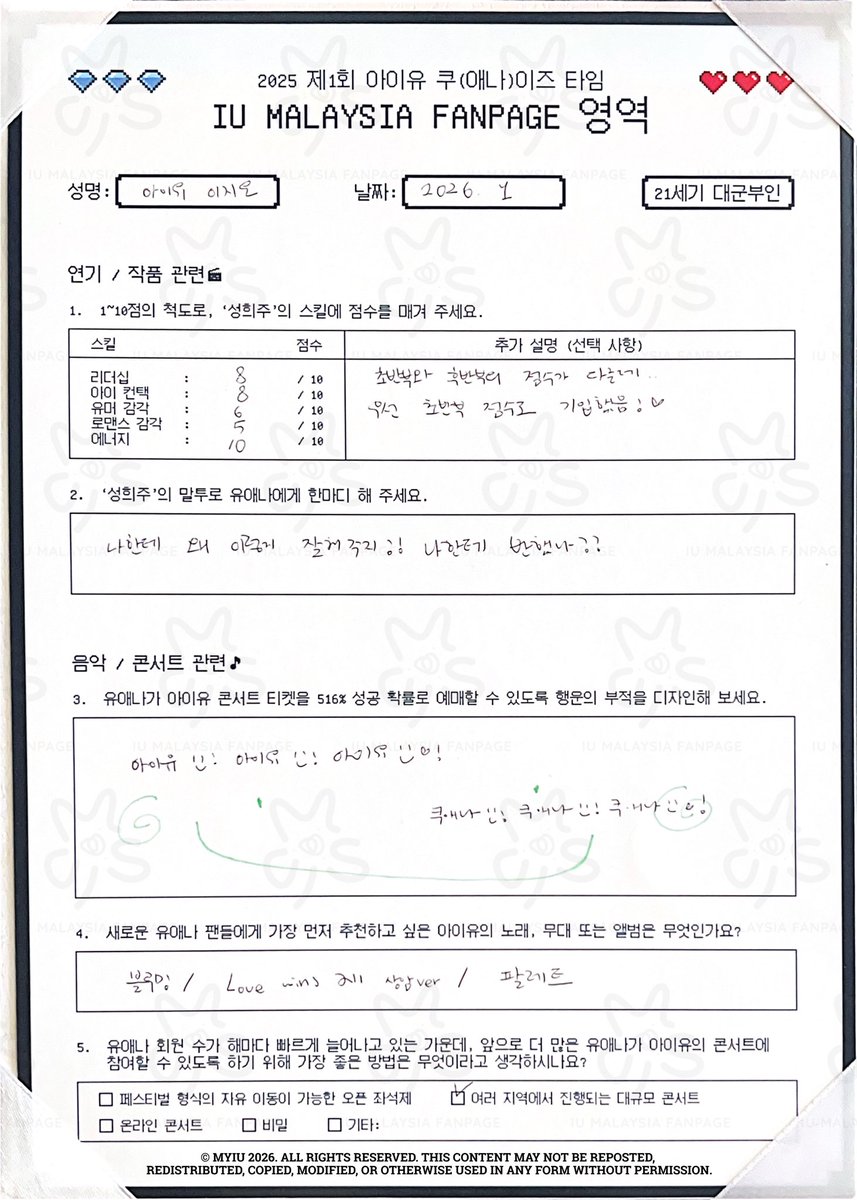 2025 제1회 아이유 쿠(애나)이즈 타임
IU MALAYSIA FANPAGE 영역
성명: 아이유 이지은
날짜: 2026. 1
21세기 대군부인
연기 / 작품 관련
1. 1~10점의 척도로, '성희주'의 스킬에 점수를 매겨 주세요.
스킬 점수 추가 설명 (선택 사항)
리더십 : 8 / 10
아이 컨택 : 8 / 10
유머 감각 : 6 / 10
로맨스 감각 : 5 / 10
에너지 : 10 / 10
초반부와 후반부의 점수가 다를데..
우선 초반부 점수로 기입했음!♡
2. '성희주'의 말투로 유애나에게 한마디 해 주세요.
나한테 왜 이렇게 잘해주지?! 나한테 반했나??
음악 / 콘서트 관련♪
3. 유애나가 아이유 콘서트 티켓을 516% 성공 확률로 예매할 수 있도록 행운의 부적을 디자인해 보세요.
아이유 ! 아이유 ! 아이유
4. 새로운 유애나 팬들에게 가장 먼저 추천하고 싶은 아이유의 노래, 무대 또는 앨범은 무엇인가요?
블루밍 / Love wins 제 상암ver / 팔레트
5. 유애나 회원 수가 해마다 빠르게 늘어나고 있는 가운데, 앞으로 더 많은 유애나가 아이유의 콘서트에
참여할 수 있도록 하기 위해 가장 좋은 방법은 무엇이라고 생각하시나요?
□ 페스티벌 형식의 자유 이동이 가능한 오픈 좌석제 ☑ 여러 지역에서 진행되는 대규모 콘서트
□ 온라인 콘서트 □ 비밀 □ 기타:
© MYIU 2026. ALL RIGHTS RESERVED. THIS CONTENT MAY NOT BE REPOSTED,
REDISTRIBUTED, COPIED, MODIFIED, OR OTHERWISE USED IN ANY FORM WITHOUT PERMISSION.